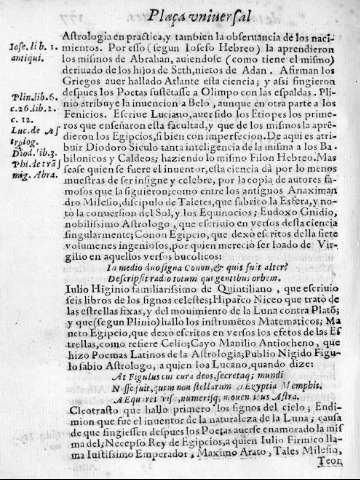 Plaça vniuersal
Astrologia en practica, y tambien la obseruancia de los naci-
mientos. Por esso (segun Iosefo Hebreo) la aprendieron
los mismos de Abrahan, auiendose (como tiene el mismo)
deriuado de los hijos de Seth, nietos de Adan. Afirman los
Griegos auer hallado Atlante esta ciencia; y assi fingieron
despues los Poetas sustẽtasse a Olimpo con las espaldas. Pli-
nio atribuye la inuencion a Belo, aunque en otra parte a los
Fenicios. Escriue Luciano, auer sido los Etiopes los prime-
ros que enseñaron esta facultad, y que de los mismos la aprẽ-
dieron los Egipcios, si bien con imperfeccion. De aqui es atri-
buir Diodoro Siculo tanta inteligencia de la misma a los Ba-
bilonicos y Caldeos; haziendo lo mismo Filon Hebreo. Mas
sease quien se fuere el inuentor, esta ciencia dà por lo menos
muestras de ser insigne y celebre, por la copia de autores fa-
mosos que la siguieron; como entre los antiguos Anaximan
dro Milesio, dicipulo de Taletes, que fabricò la Esfera, y no-
tò la conuersion del Sol, y los Equinocios; Eudoxo Gnidio,
nobilissimo Astrologo, que escriuio en versos desta ciencia
singularmente; Conon Egipcio, que dexò escritos della siete
volumenes ingeniosos, por quien merecio ser loado de Vir-
gilio en aquellos versos bucolicos:
In medio duo signa Conon, & quis fuit alter?
Descripsit radio totum qui gentibus orbem.
Iulio Higinio familiarissimo de Quintiliano, que escriuio
seis libros de los signos celestes; Hiparco Niceo que tratò de
las estrellas fixas, y del mouimiento de la Luna contra Platõ;
y que (segun Plinio) hallò los instrumẽtos Matematicos; Ma
neto Egipcio, que dexò escritos en versos los efetos de las Es
trellas, como refiere Celio; Cayo Manilio Antiocheno, que
hizo Poemas Latinos de la Astrologia; Publio Nigido Figu-
lo sabio Astrologo, a quien loa Lucano, quando dize:
At Figulus cui cura deos, secretaq; mundi
Nosse fuit, quem non stellarum Ægyptia Memphis,
Æquaret visu, numerisq; mouentibus Astra.
Cleostrato que hallò primero los signos del cielo; Endi-
mion que fue el inuentor de la naturaleza de la Luna; causa
de que fingiessen despues los Poetas auerse enamorado la mis
ma del; Necepso Rey de Egipcios, a quien Iulio Firmico lla-
ma Iustissimo Emperador, Maximo Arato, Tales Milesio,
Teor,
Iose. li b. 1.
antiqui.
Plin. lib. 6.
c. 26. lib. 2.
c. 12.
Luc. de As
trolog.
Diod. lib. 3.
Phi. de trãs
mig. Abra.